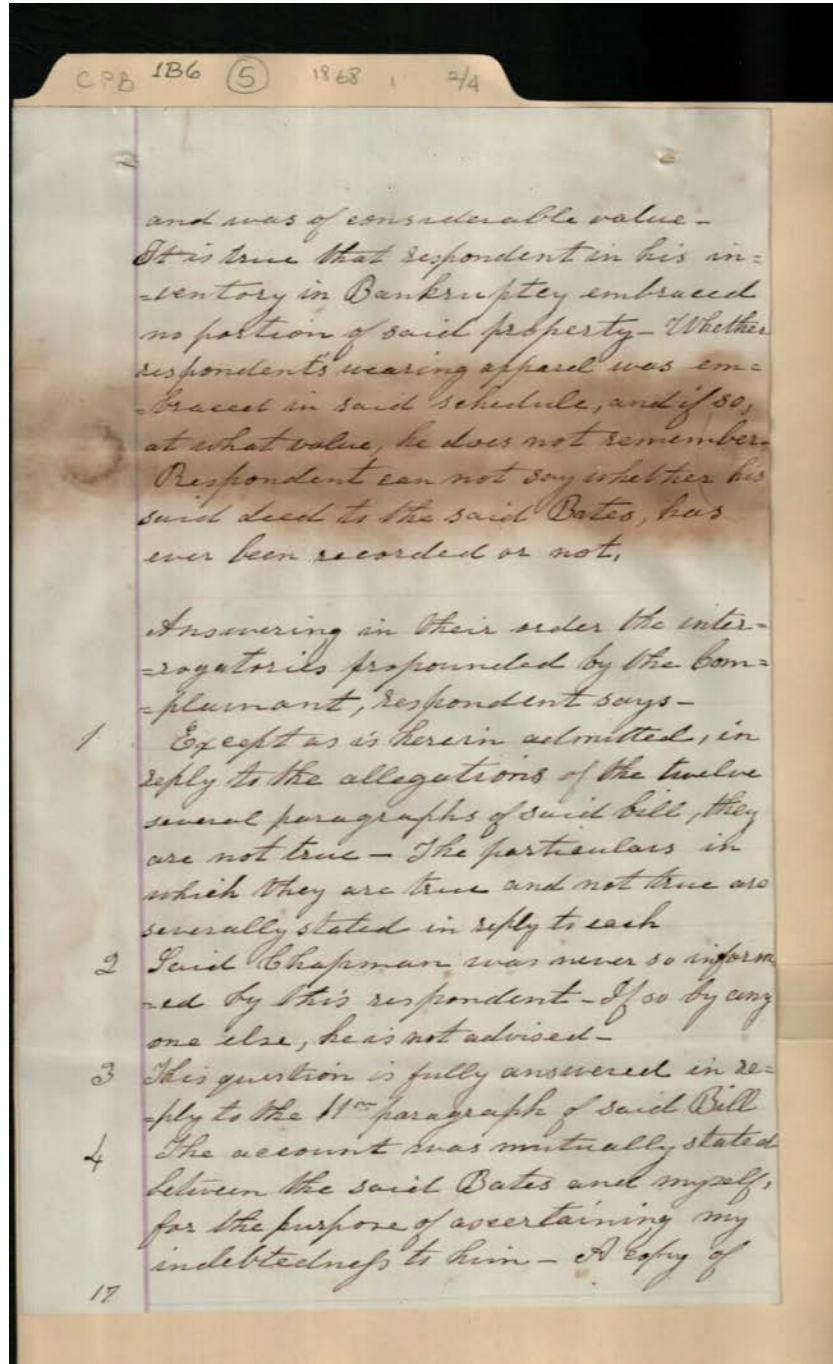 CPB 1B6 5 1868 1 2/4
and was of considerable value -
It is true that respondent in his in=
=ventory in Bankruptcy embraced
no portion of said property - Whether
respondent's wearing apparel was em=
=braced in said schedule, and if so,
at what value, he does not remember.
Respondent can not say whether his
said deed to the said Bates, has
ever been recorded or not.
Answering in their order the inter=
=rogatories propounded by the Com=
=plainant, respondent says -
1 Except as is herein admitted, in
reply to the allegations of the twelve
several paragraphs of said bill, they
are not true - The particulars in
which they are true and not true are
severally stated in reply to each
2 Said Chapman was never so inform
=ed by this respondent - If so by any
one else, he is not advised -
3 This question is fully answered in re=
=ply to the 11th paragraph of said Bill
4 The account was mutually stated
between the said Bates and myself,
for the purpose of ascertaining my
indebtedness to him - A copy of
17